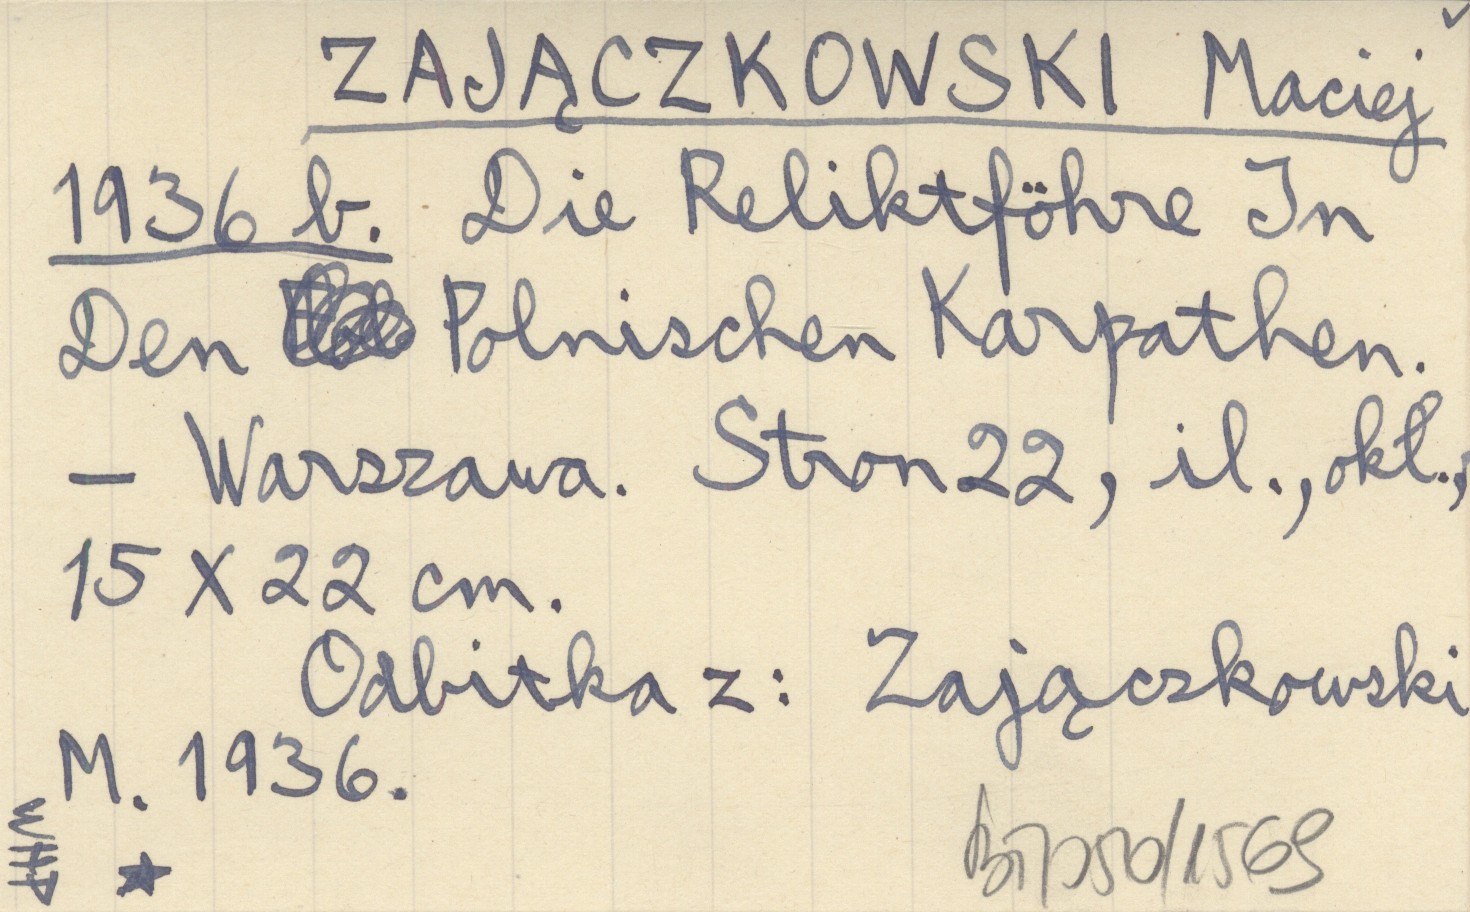 ZAJĄCZKOWSKI Maciej
1936 b. Die Reliktföhre In
Den Polnischen Karpathen.
– Warszawa. Stron 22, il., okł.,
15 X 22 cm.
Odbitka z: Zajączkowski
M. 1936.
WHP